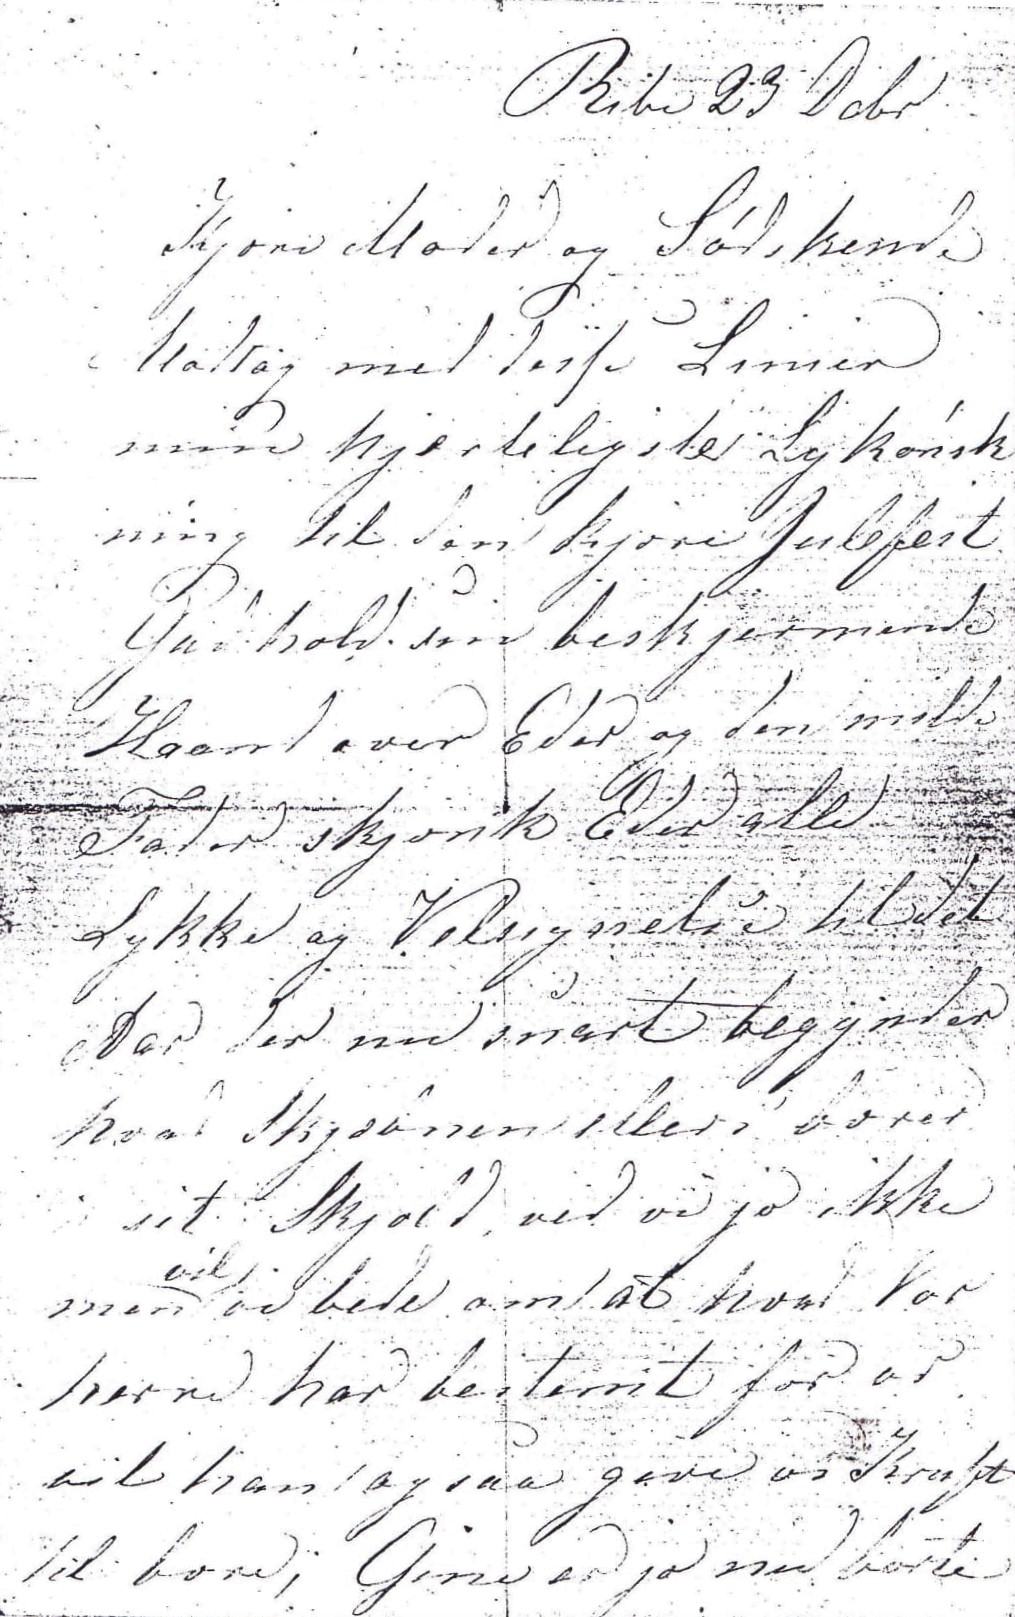 Ribe 23 Debr
Kjære Moder og Södskende
Modtag med disse Linier
min hjerteligste Lykönsk
ning til den kjære Julefest
Gud hold sin beskjermende
Haand over Eder og den milde
Fader skjænk Eder alle
Lykke og Velsignelse til det
Aar der nu snart begynder
hvad Skjæbnen ellers bærer i
sit Skjold, ved vi jo ikke
men vil vi bede om at hvad Vor
herre har bestemt for os
vil han ogsaa give os Kraft
til bære, Gine er jo nu borte